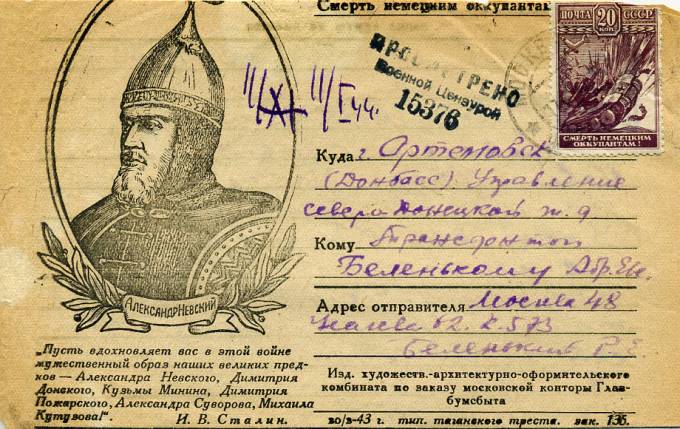 Смерть немецким оккупантам
ПОЧТА 20 КОП СССР
СМЕРТЬ НЕМЕЦКИМ
ОККУПАНТАМ!
ПРОСМОТРЕНО
Военной Цензурой
15376
11/I 44.
Куда г. Артемовск
(Донбасс) Управление
северо Донецкой ж. д
Кому
Беленькому Абр.
Адрес отправителя Москва 48
62. к. 573
Беленький Р.
АЛЕКСАНДР НЕВСКИЙ
„Пусть вдохновляет вас в этой войне
мужественный образ наших великих пред-
ков — Александра Невского, Димитрия
Донского, Кузьмы Минина, Димитрия
Пожарского, Александра Суворова, Михаила
Кутузова!“.
И. В. Сталин.
Изд. художеств.-архитектурно-оформительского
комбината по заказу московской конторы Глав-
бумсбыта
во/в-43 г. тип. таганского треста. зак. 135.